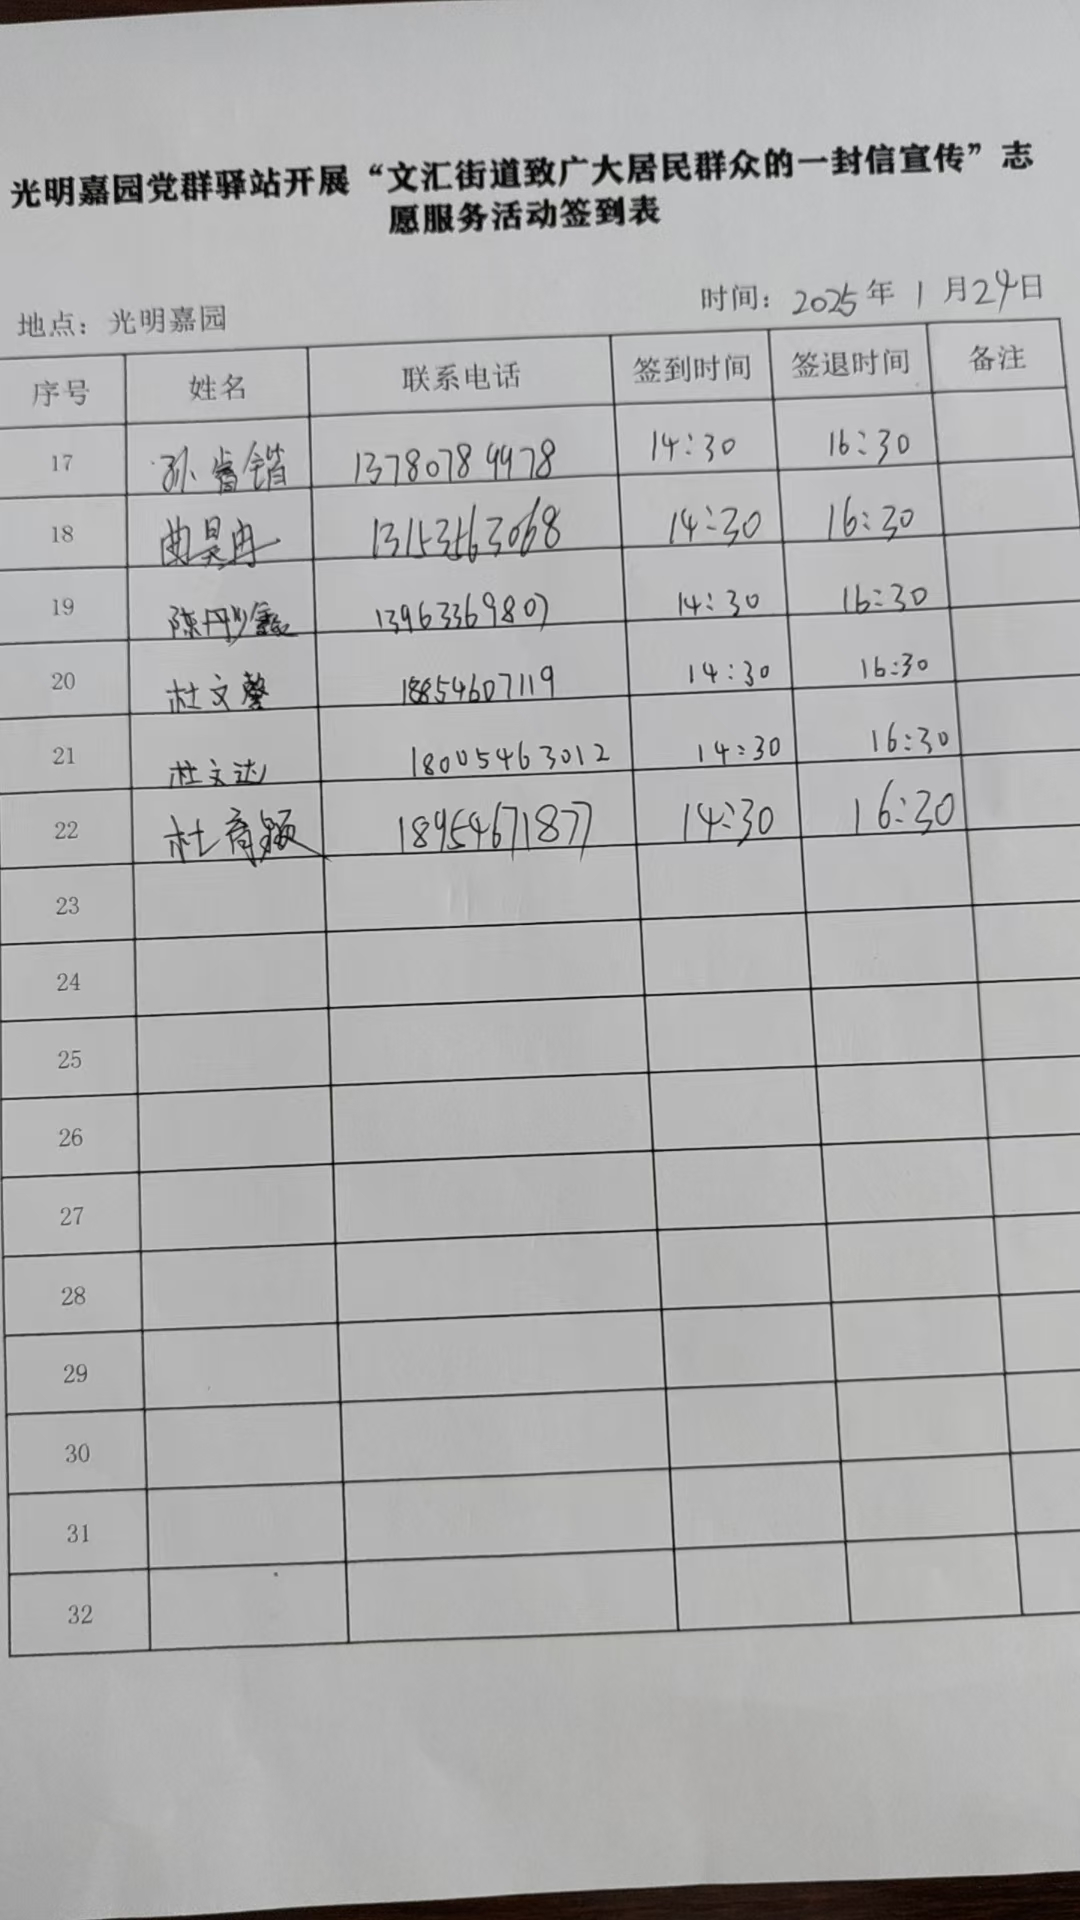 光明嘉园党群驿站开展“文汇街道致广大居民群众的一封信宣传”志
愿服务活动签到表
地点：光明嘉园 时间：2025年 1 月24日
序号 姓名 联系电话 签到时间 签退时间 备注
17 孙睿锴 13780789978 14:30 16:30
18 曲昊冉 13153563068 14:30 16:30
19 陈丹 13963369807 14:30 16:30
20 杜文馨 18854607119 14:30 16:30
21 杜文达 18005463012 14:30 16:30
22 杜育颖 18954671877 14:30 16:30
23
24
25
26
27
28
29
30
31
32